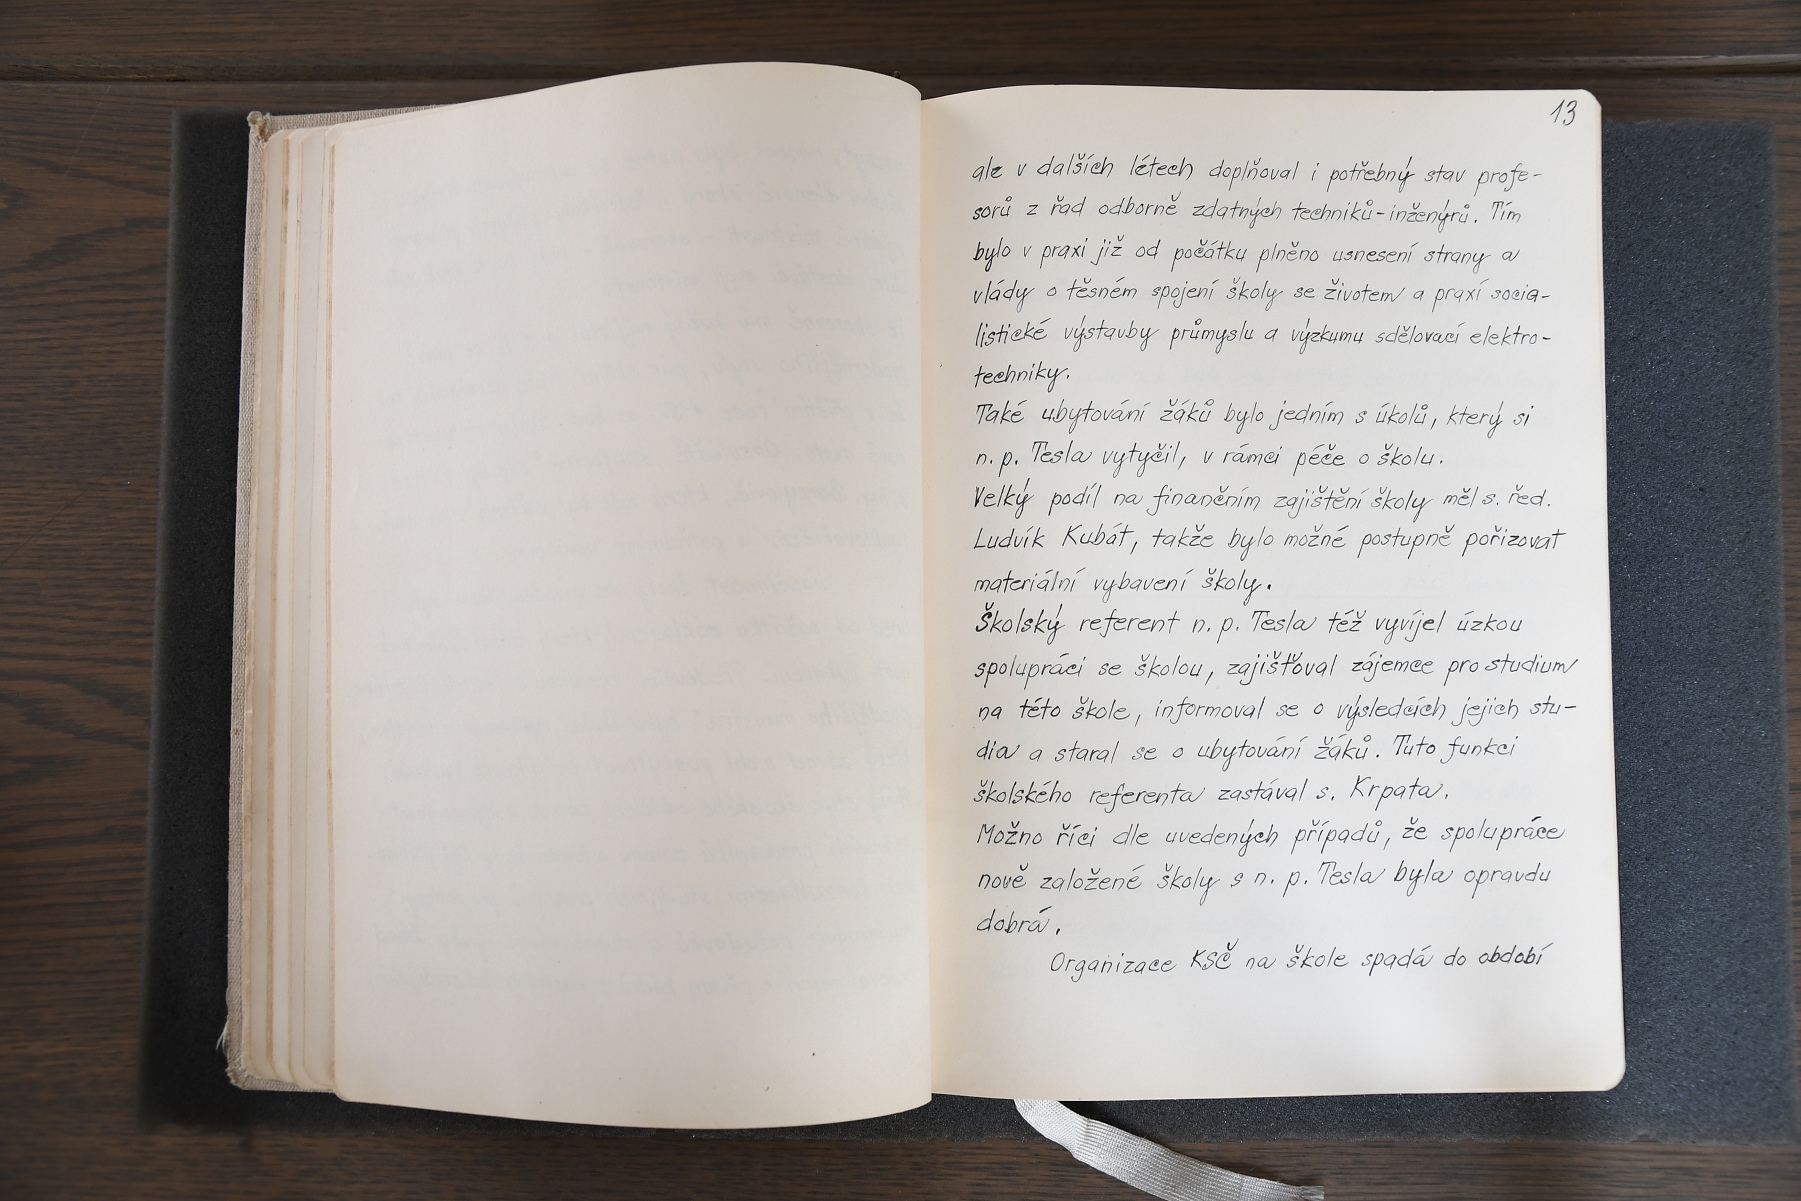 13
ale v dalších létech doplňoval i potřebný stav profe-
sorů z řad odborně zdatných techniků-inženýrů. Tím
bylo v praxi již od počátku plněno usnesení strany a
vlády o těsném spojení školy se životem a praxí socia-
listické výstavby průmyslu a výzkumu sdělovací elektro-
techniky.
Také ubytování žáků bylo jedním s úkolů, který si
n. p. Tesla vytyčil, v rámci péče o školu.
Velký podíl na finančním zajištění školy měl s. řed.
Ludvík Kubát, takže bylo možné postupně pořizovat
materiální vybavení školy.
Školský referent n. p. Tesla též vyvíjel úzkou
spolupráci se školou, zajišťoval zájemce pro studium
na této škole, informoval se o výsledcích jejich stu-
dia a staral se o ubytování žáků. Tuto funkci
školského referenta zastával s. Krpata.
Možno říci dle uvedených případů, že spolupráce
nově založené školy s n. p. Tesla byla opravdu
dobrá.
Organizace KSČ na škole spadá do období